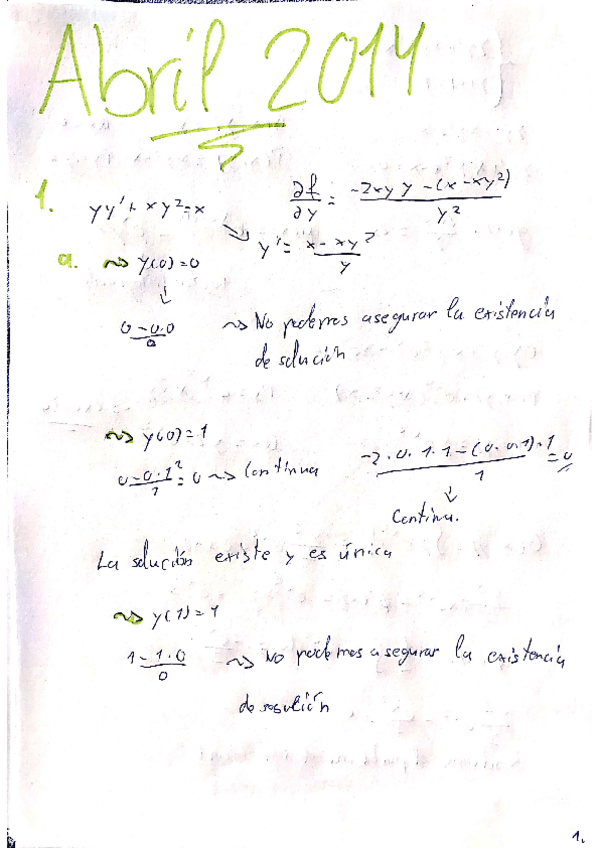 Abril 2014
1. yy' + xy² = x
∂f/∂y = (-2xy y - (x - xy²))/y²
↘ y' = (x - xy²)/y
a. ⇝ y(0) = 0
↓
(0 - 0·0)/0 ⇝ No podemos asegurar la existencia
de solución
⇝ y(0) = 1
(0 - 0·1²)/1 = 0 ⇝ Continua
(-2·0·1·1 - (0·0·1)·1)/1 = 0
↓
Continu.
La solución existe y es única
⇝ y(1) = 1
(1 - 1·0)/0 ⇝ No podemos asegurar la existencia
de solución
1.